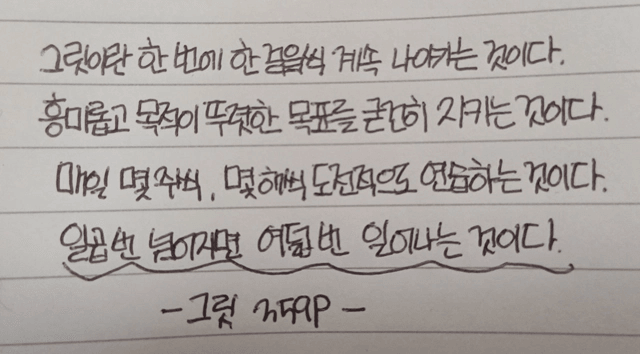 그릿이란 한 번에 한 걸음씩 계속 나아가는 것이다.
흥미롭고 목적이 뚜렷한 목표를 굳건히 지키는 것이다.
매일 몇 주씩, 몇 해씩 도전적으로 연습하는 것이다.
일곱 번 넘어지면 여덟 번 일어나는 것이다.
-그릿 359P-